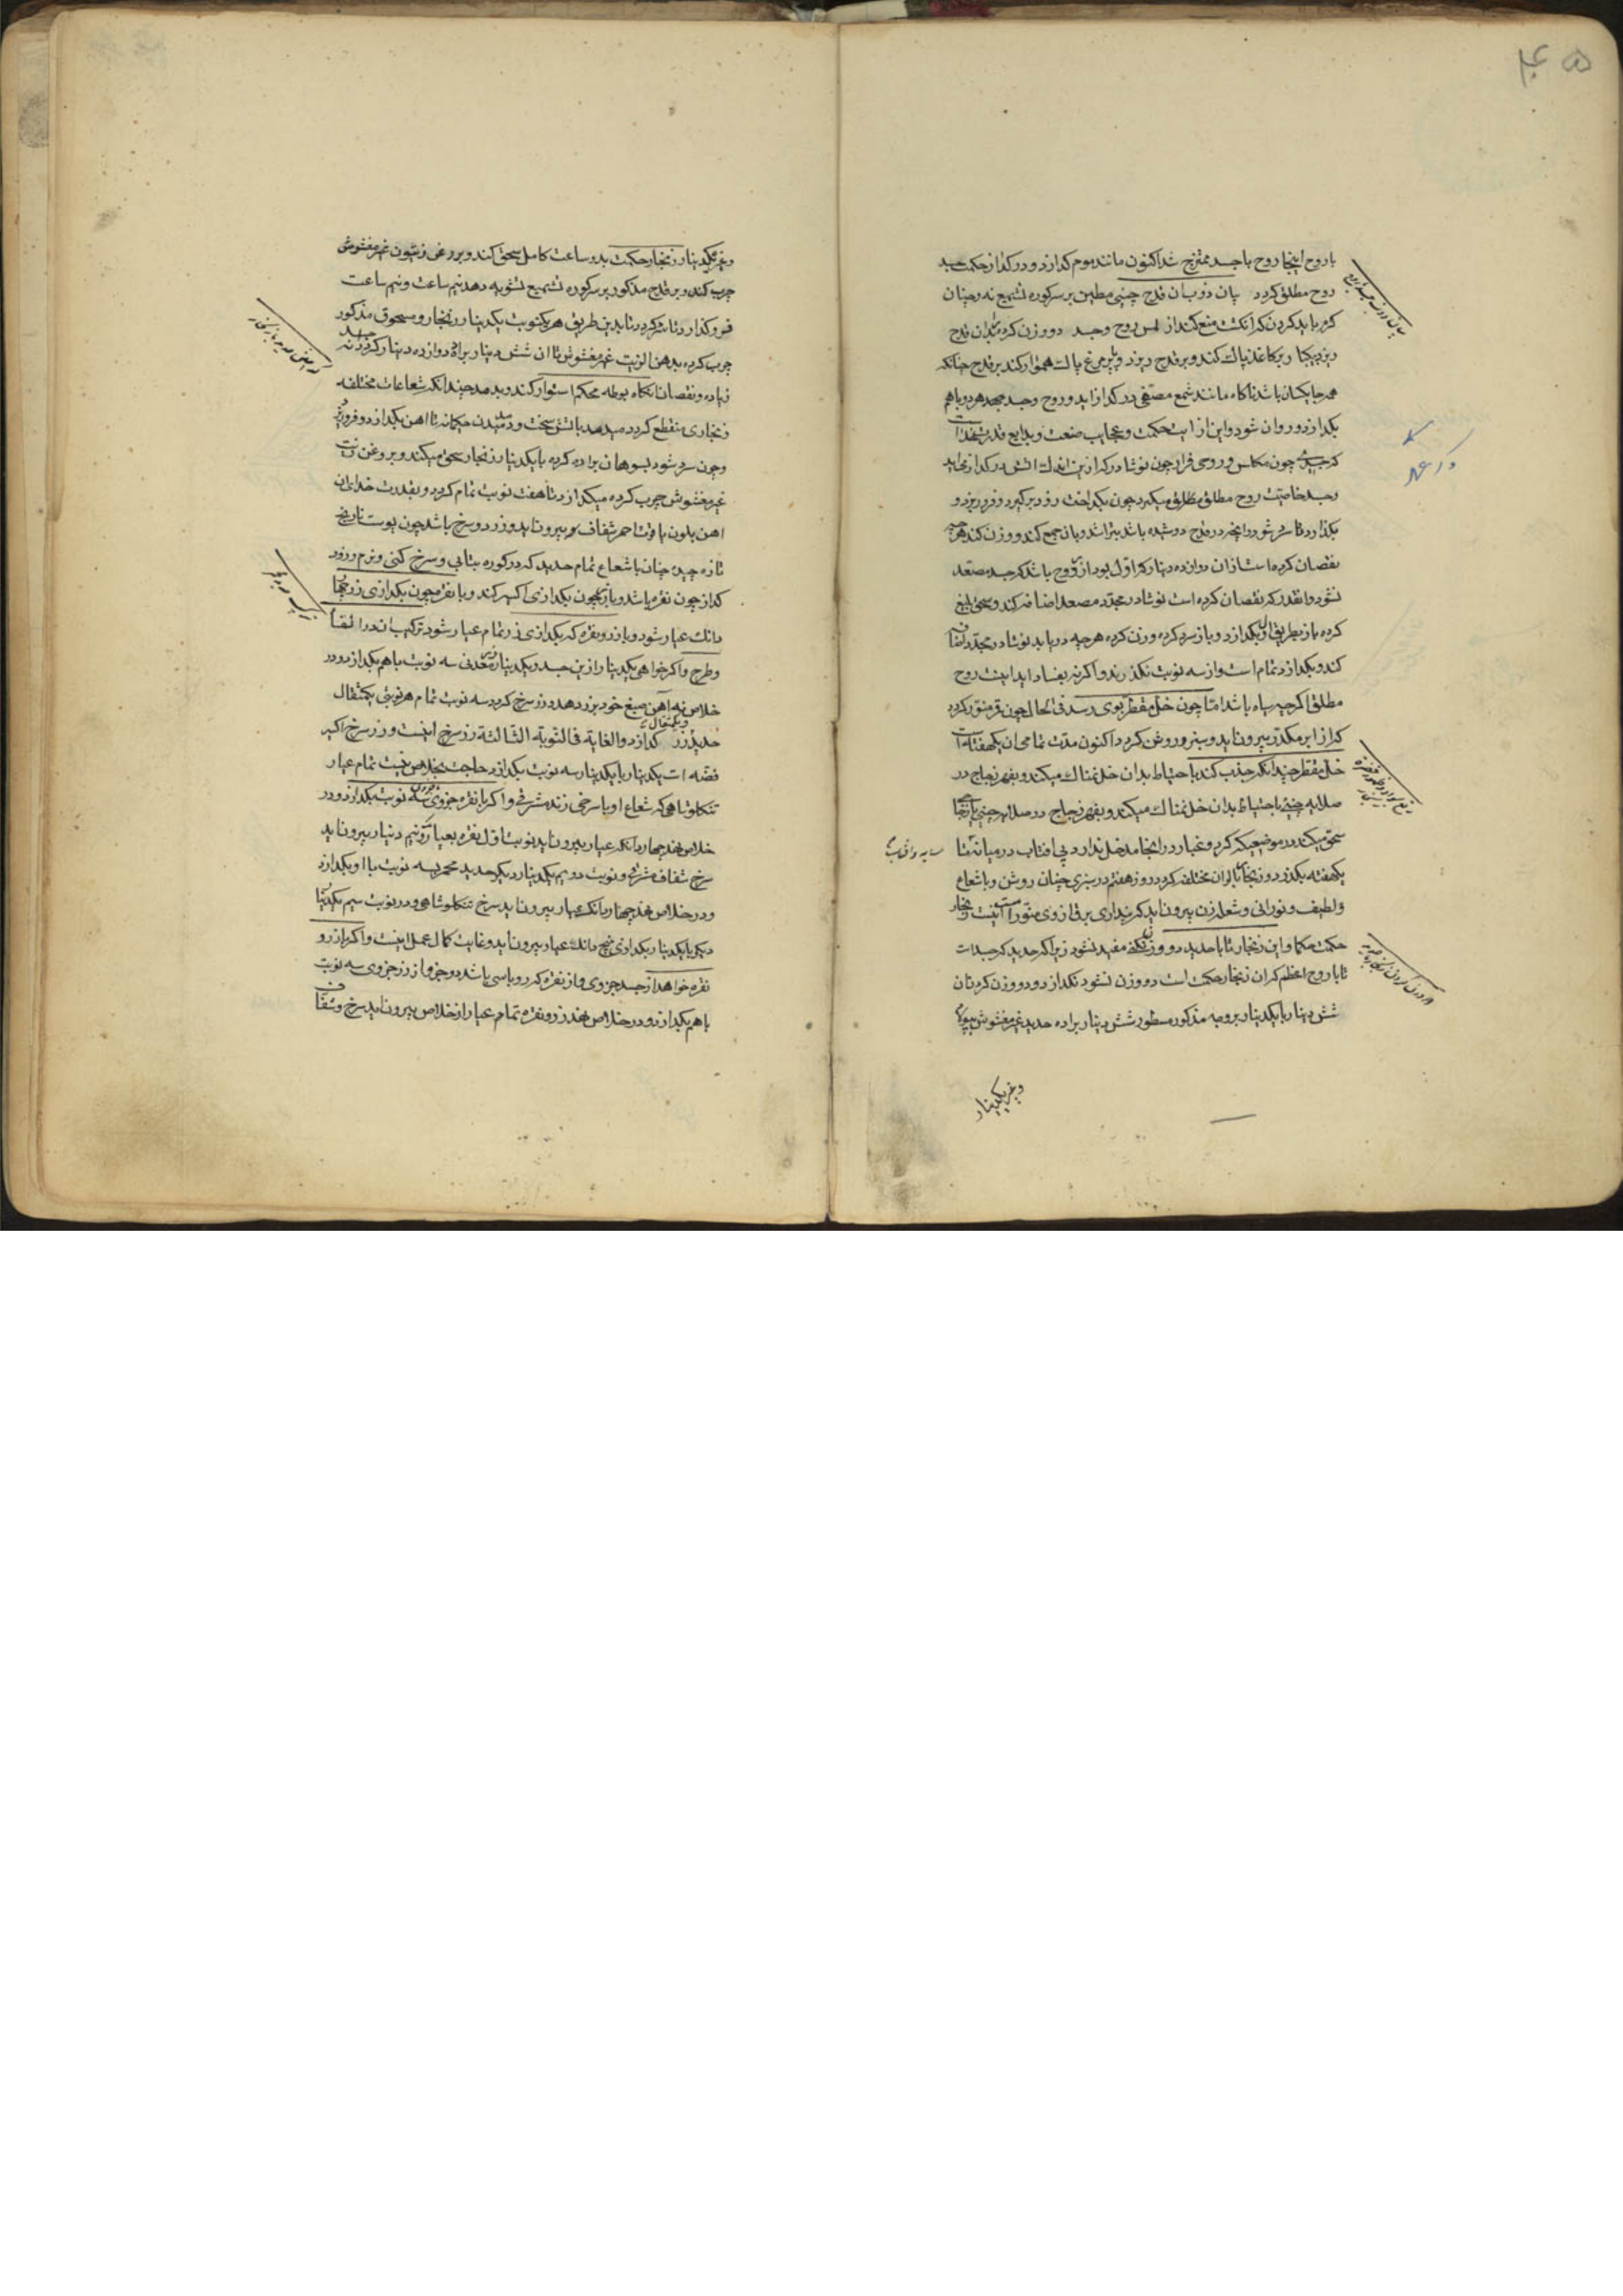 با روح اینجا روح با جسد ممتزج شد اکنون مانند موم کدازد و در کداز حکمت جسد
روح مطلق کردد بیان ذوبان قدح چینی مطین بر سر کوره تشمیع نه و چنان
کرم باید کردن که انکشت منع کند از لمس روح و جسد دو وزن کرده بدان قدح
ریزد یکبار بر کاغذ پاک کند و بر قدح ریزد و بپر مرغ پاک هموار کند بر قدح چنانکه
همه جا یکسان باشد ناکاه مانند شمع مصفی در کداز اید و روح و جسد هر دو باهم
بکدازد و روان شود و این از ایت حکمت و عجایب صنعت و بدایع قدرتست
که جسد چون مکلس و روحی فرار چون نوشادر که ازین اندک اتش در کداز می اید
و جسد خاصیت روح مطلق میکیرد چون بکداخت زود برکیرد و فرو ریزد و
بکذارد تا سرد شود و انچه در قدح دوسیده باشد بتراشد و بان جمع کند و وزن کند هر چه
نقصان کرده است از ان دوازده دینار که اول بود از روح باشد که جسد مصعد
نشود و انقدر که نقصان کرده است نوشادر مجدد مصعد اضافه کند و سحق بلیغ
کرده باز بطریق اول بکدازد و باز سرد کرده وزن کرده هر چه درباید نوشادر مجدد اضافه
کند و بکدازد تمام است و از سه نوبت نکذراند و اکر نه بفساد اید اینست روح
مطلق اکرچه سیاه باشد اما چون خل مقطر بوی رسد فی الحال چون قمر منور کردد
که از ابر مکدر بیرون اید و سبز و روشن کردد اکنون مدت تمامی ان یکهفته است
خل مقطر چندانکه جذب کند با حتیاط بدان خل نمناک میکند و بفهر زجاج در
صلایه چینی با حتیاط بدان خل نمناک میکند و بفهر زجاج در صلایه چینی یا زجاجی
سحق میکند در موضعیکه کرد و غبار در انجا مدخل ندارد بی افتاب در میانه تا
یکهفته بکذرد و زنجار بالوان مختلف کردد روز هفتم در سبزی چنان روشن و با شعاع
و لطیف و نورانی و شعله زن بیرون اید که پنداری برقی از وی منور است اینست زنجار
حکمت حکما و این زنجار تا با حدید دو وزن نکنی مفید نشود زیرا که حدید که جسد است
تا با روح اعظم که ان زنجار حکمت است دو وزن نشود نکدازد و دو وزن کردن ان
شش دینار با یکدینار بر وجه مذکور مسطور شش دینار براده حدید غیر مغشوش
و غیر یکدینار
وغیر یکدینار زنجار حکمت بدو ساعت کامل سحق کند و بروغن زیتون غیر مغشوش
چرب کند و بر قدح مذکور بر سر کوره تشمیع تشویه دهد نیم ساعت و نیم ساعت
فرو کذارد تا سرد کردد تا بدین طریق هر یکنوبت یکدینار زنجار و مسحوق مذکور
چرب کرده بدهن الزیت غیر مغشوش تا ان شش دینار براده دوازده دینار کردد نه
زیاده و نقصان انکاه بوطه محکم استوار کند و بدمد چندانکه شعاعات مختلفه
زنجاری منقطع کردد میدهد باتش سخت و دمیدن حکیمانه تا اهن بکدازد و فرو ریزد
و چون سرد شود بسوهان براده کرده با یکدینار زنجار سحق میکند و بروغن زیت
غیر مغشوش چرب کرده میکدازد تا هفت نوبت تمام کردد و بقدرت خدای ان
اهن بلون یاقوت احمر شفاف بیرون اید و زرد و سرخ باشد چون پوست نارنج
تازه چیده چنان با شعاع تمام حدید که در کوره بتابی و سرخ کنی و نرم و زود
کداز چون نقره باشد و با زر چون بکدازی اکسیر کند و با نقره چون بکدازی زر پنج
دانک عیار شود و با زر و نقره که بکدازی زر تمام عیار شود ترکیب ان در القا
و طرح و اکر خواهی یکدینار ازین جسد و یکدینار زر معدنی سه نوبت با هم بکدازد و در
خلاص نهد اهن صبغ خود بزر دهد و زر سرخ کردد سه نوبت تمام هر نوبتی یکمثقال
حدید و یکمثقال زر کدازد و الغایة فی النوبة الثالثة زر سرخ اینست و زر سرخ اکسیر
فضه است یکدینار با یکدینار سه نوبت بکدازد حاجت بخلاص نیست تمام عیار
تنکلوشاهی که شعاع او با سرخی زند مشرقی و اکر با نقره جزوی سه نوبت بکدازد و در
خلاص نهد چهار دانک عیار بیرون اید نوبت اول نقره بعیار دو نیم دینار بیرون اید
سرخ شفاف مشرقی و نوبت دویم یکدینار دیکر حدید محمر بسه نوبت با او بکدازد
و در خلاص نهد چهار دانک عیار بیرون اید سرخ تنکلوشاهی و در نوبت سیم یکدینار
دیکر با یکدینار بکدازی پنج دانک عیار بیرون اید و غایت کمال عمل اینست و اکر از زر و
نقره خواهد از جسد جزوی و از نقره که رو باسی باشد دو جزو از زر جزوی سه نوبت
با هم بکدازد و در خلاص نهد زر و نقره تمام عیار از خلاص بیرون اید سرخ و شفاف